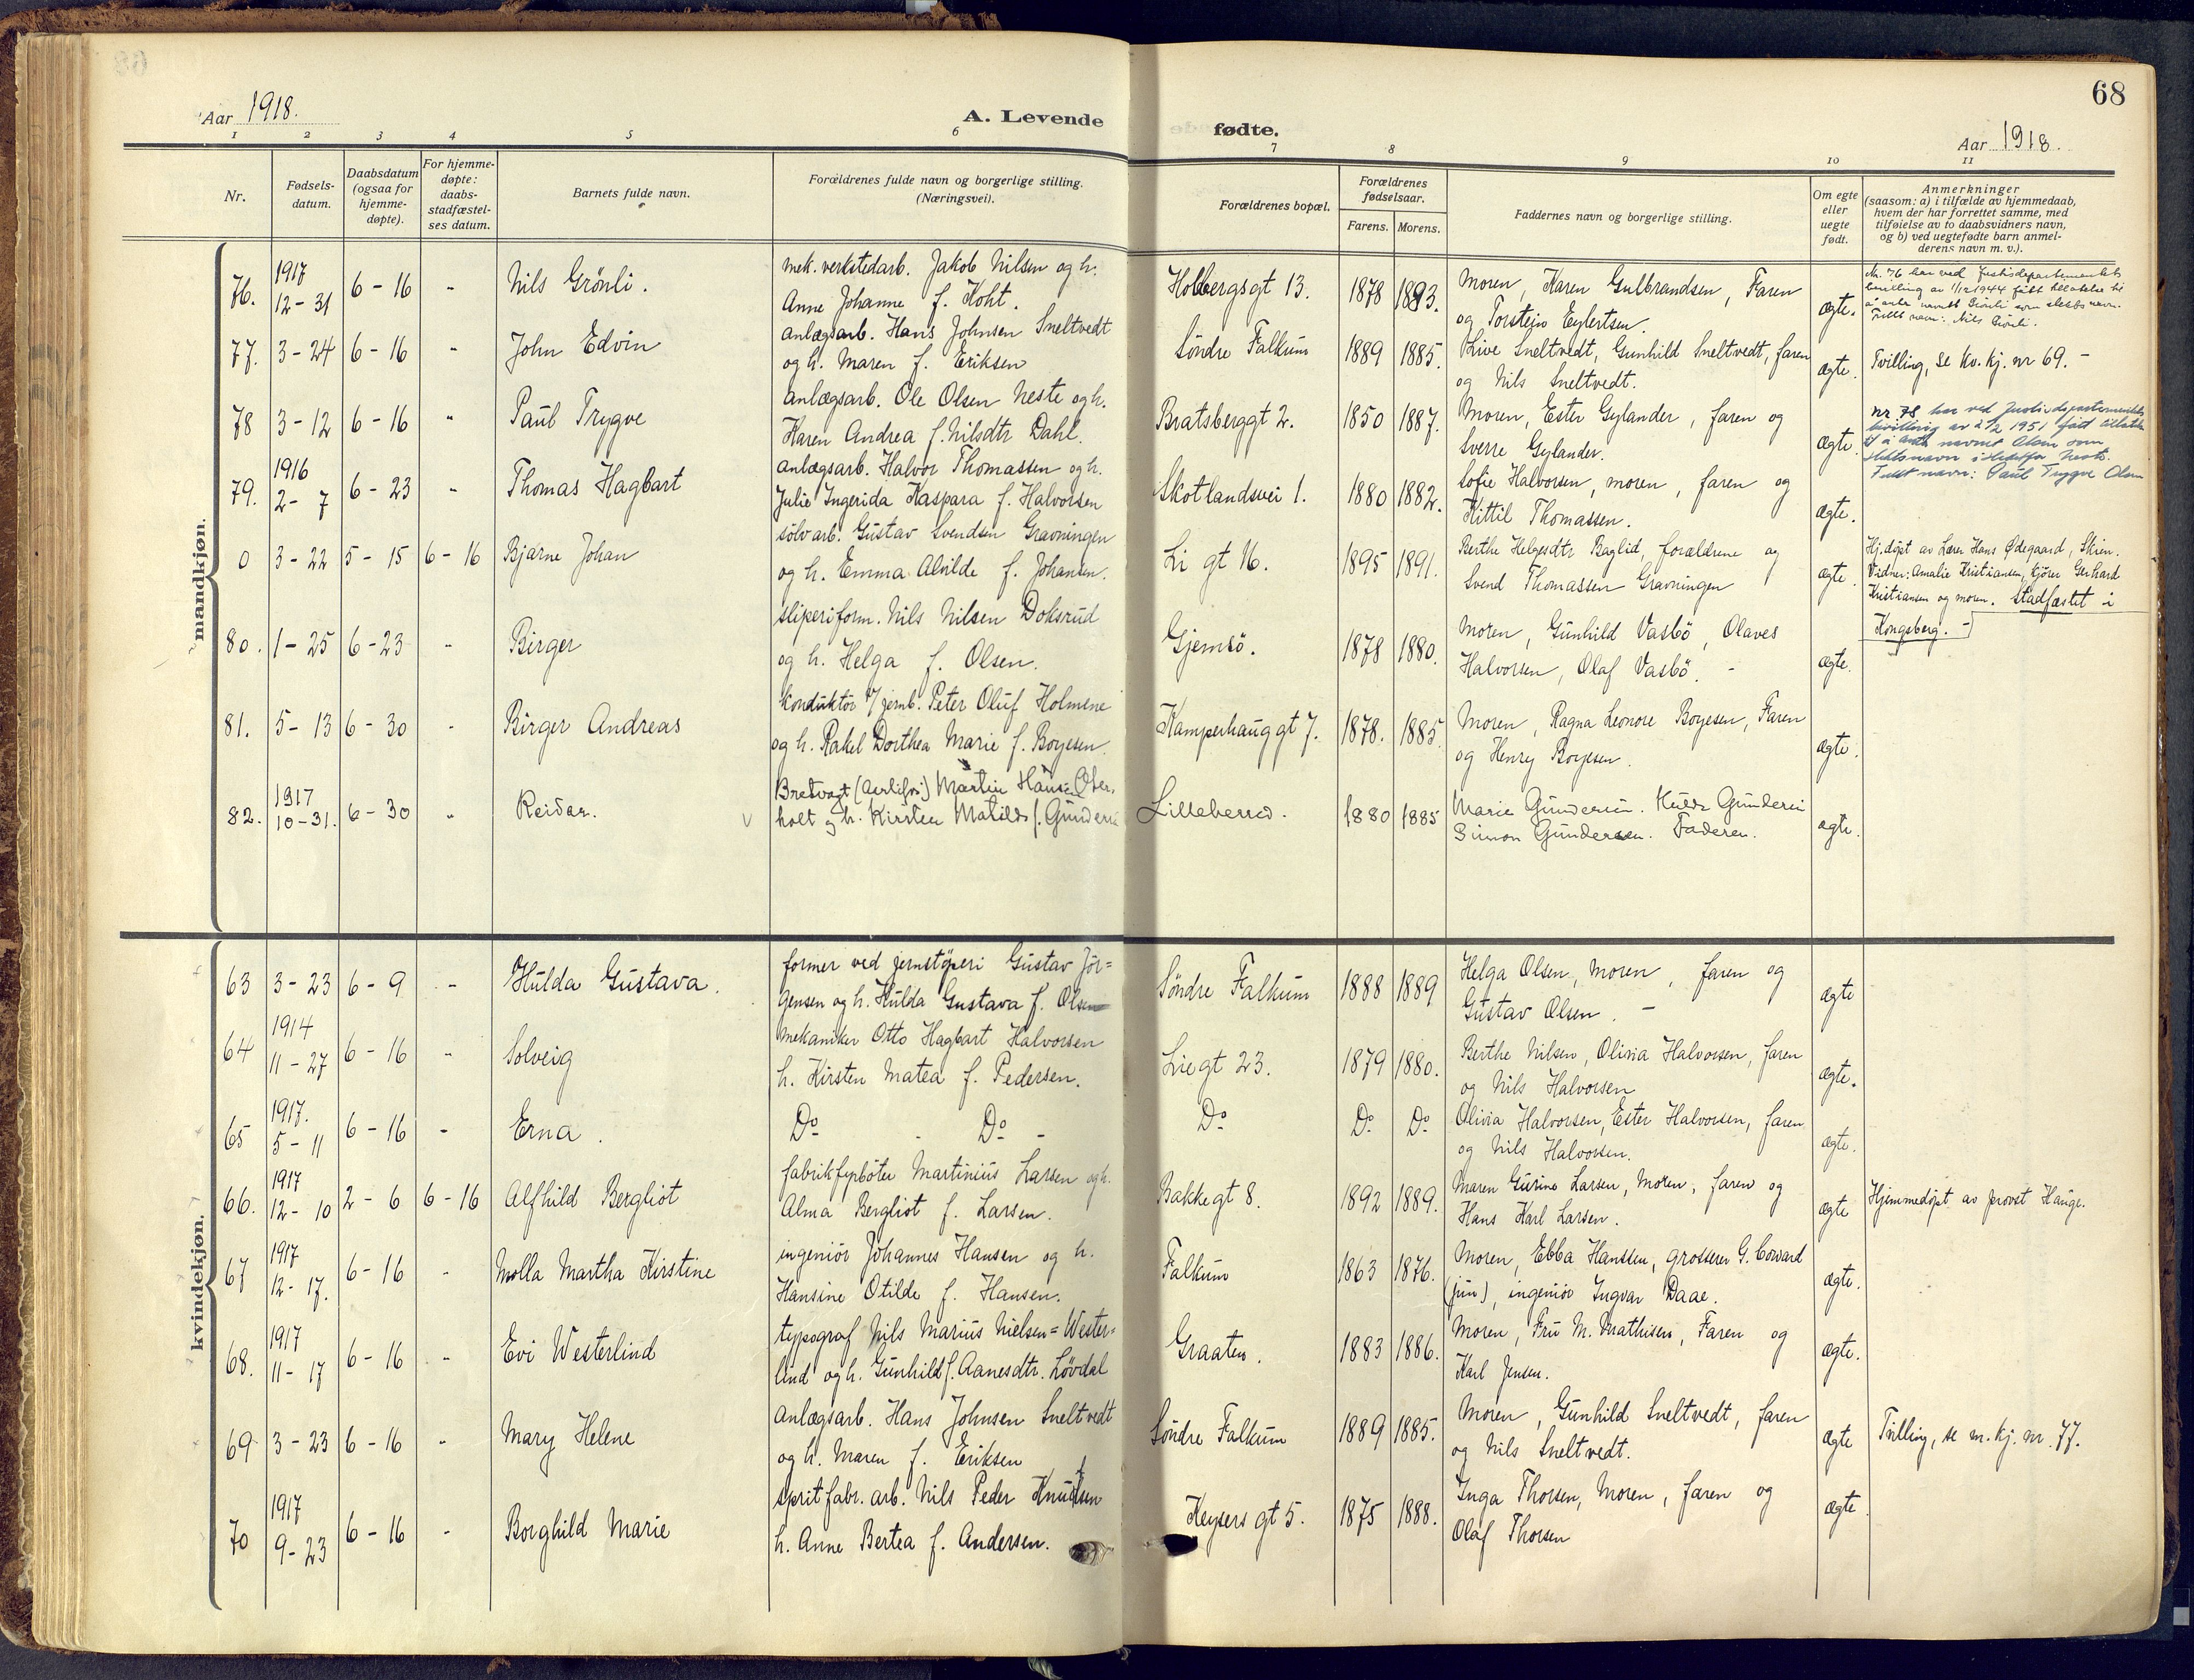 68
Aar 1918.
A. Levende fødte.
Aar 1918.
1 2 3 4 5 6 7 8 9 10 11
Nr.
Fødsels-
datum.
Daabsdatum
(ogsaa for
hjemme-
døpte).
For hjemme-
døpte:
daabs-
stadfæstel-
ses datum.
Barnets fulde navn.
Forældrenes fulde navn og borgerlige stilling.
(Næringsvei).
Forældrenes bopæl.
Forældrenes
fødselsaar.
Farens. Morens.
Faddernes navn og borgerlige stilling.
Om egte
eller
uegte
født.
Anmerkninger
(saasom: a) i tilfælde av hjemmedaab,
hvem der har forrettet samme, med
tilføielse av to daabsvidners navn,
og b) ved uegtefødte barn anmel-
derens navn m. v.).
mandkjøn.
76. 1917 12-31 6-16 - Nils Grönli.
mek. verkstedarb. Jakob Nilsen og h.
Anne Johanne f. Koht.
Holbergsgt 13. 1878 1893.
Moren, Karen Gulbrandsen, Faren
og Torstein Eylertsen.
ægte.
Nr. 76 har ved Justisdepartementets
bevilling av 1/12 1944 fått tillatelse til
å anta navnet Grönli som slektsnavn.
Fullt navn: Nils Grönli.
77. 3-24 6-16 - John Edvin
anlægsarb. Hans Johnsen Sneltvedt
og h. Maren f. Eriksen
Söndre Falkum 1889 1885.
Live Sneltvedt, Gunhild Sneltvedt, faren
og Nils Sneltvedt.
ægte.
Tvilling, se kv. kj. nr 69. -
78 3-12 6-16 - Paul Trygve
anlægsarb. Ole Olsen Neste og h.
Karen Andrea f. Nilsdtr Dahl.
Bratsberggt 2. 1850 1887.
Moren, Ester Gylander, faren og
Sverre Gylander.
ægte.
Nr 78 har ved Justisdepartementets
bevilling av 2/2 1951 fått tillatelse
til å anta navnet Olsen som
slektsnavn istedetfor Neste.
Fullt navn: Paul Trygve Olsen
79. 1916 2-7 6-23 - Thomas Hagbart
anlægsarb. Halvor Thomassen og h.
Julie Ingerida Kaspara f. Halvorsen
Skotlandsvei 1. 1880 1882.
Sofie Halvorsen, moren, faren og
Kittil Thomassen.
ægte.
0 3-22 5-15 6-16 Bjarne Johan
sölvarb. Gustav Svendsen Gravningen
og h. Emma Alvilde f. Johansen.
Li gt 16. 1895 1891.
Berthe Helgesdtr Baglid, forældrene og
Svend Thomassen Gravningen
ægte.
Hj. döpt av Lærer Hans Ødegaard, Skien.
Vidner: Amalie Kristiansen, kjörer Gerhard
Kristiansen og moren. Stadfæstet i
Kongsberg. -
80. 1-25 6-23 - Birger
sliperiform. Nils Nilsen Doksrud
og h. Helga f. Olsen.
Gjemsö. 1878 1880.
Moren, Gunhild Vasbö, Olaves
Halvorsen, Olaf Vasbö. -
ægte.
81. 5-13 6-30 - Birger Andreas
konduktör v/jernb. Peter Oluf Holmene
og h. Rakel Dorthea Marie f. Boyesen.
Kamperhauggt 7. 1878. 1885
Moren, Ragna Leonore Boyesen, Faren
og Henry Boyesen.
ægte.
82. 1917 10-31. 6-30 - Reidar.
Martin Hansen Oter-
holt og h. Kirsten Matilde f. Gundersen
Lilleberrod. 1880 1885
Marie Gundersen. Hulda Gundersen
Simon Gundersen. Faderen.
ægte.
kvindekjøn.
63 3-23 6-9 - Hulda Gustava.
former ved jernstöperi Gustav Jör=
gensen og h. Hulda Gustava f. Olsen
Söndre Falkum 1888 1889
Helga Olsen, moren, faren og
Gustav Olsen. -
ægte
64 1914 11-27 6-16 - Solveig
mekaniker Otto Hagbart Halvorsen
h. Kirsten Matea f. Pedersen.
Liegt 23. 1879 1880.
Berthe Nilsen, Olivia Halvorsen, faren
og Nils Halvorsen
ægte.
65 1917. 5-11 6-16 - Erna.
Do - Do -
Do Do Do
Olivia Halvorsen, Ester Halvorsen, faren
og Nils Halvorsen.
ægte.
66. 1917 12-10 2-6 6-16 Alfhild Bergliot
fabrikfyrböter Martinius Larsen og h.
Alma Bergliot f. Larsen.
Bakkegt 8. 1892 1889.
Maren Gurine Larsen, Moren, faren og
Hans Karl Larsen.
ægte
Hjemmedöpt av provst Hauge.
67 1917 12-17. 6-16 - Molla Martha Kirstine
ingeniör Johannes Hansen og h.
Hansine Otilde f. Hansen.
Falkum 1863 1876.
Moren, Ebba Hanssen, grosserer G. Coward
(jun), ingeniör Ingvar Daae.
ægte.
68. 1917 11-17 6-16 - Evi Westerlind
typograf Nils Marius Nielsen=Wester=
lind og h. Gunhild f. Aanesdtr. Lövdal
Graaten. 1883 1886.
Moren, Fru M. Mathisen, Faren og
Karl Jensen.
ægte.
69 3-23 6-16 - Mary Helene
anlægsarb. Hans Johnsen Sneltvedt
og h. Maren f. Eriksen
Söndre Falkum 1889 1885.
Moren, Gunhild Sneltvedt, faren
og Nils Sneltvedt.
ægte
Tvilling, se m. kj. nr. 77.
70 1917 9-23 6-16 - Borghild Marie
spritfabr. arb. Nils Peder Knudsen
h. Anne Bertea f. Andersen.
Keysers gt 5. 1875 1888.
Inga Thorsen, Moren, faren og
Olaf Thorsen
ægte.